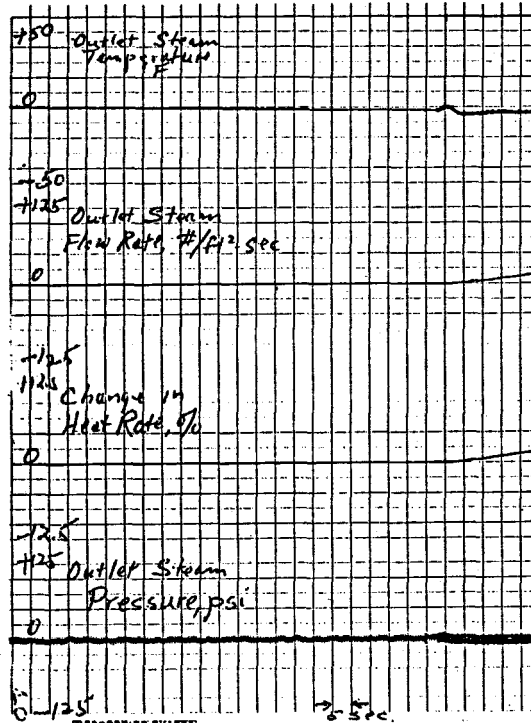 +50
Outlet Steam
Temperature
F
0
-50
+125
Outlet Steam
Flow Rate, #/ft² sec
0
-125
+12.5
Change in
Heat Rate, %
0
-12.5
+125
Outlet Steam
Pressure, psi
0
-125
5 sec.